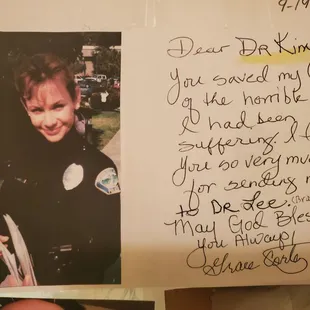 9-19
Dear Dr Kim
You saved my
of the horrible
I had been
suffering. I
you so very mu
for sending m
to Dr Lee.
May God Bles
you Always!
Grace